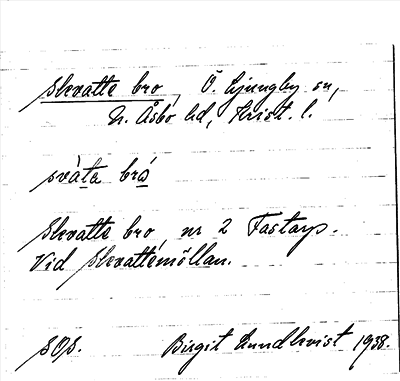 Skvatte bro, Ö. Ljungby sn,
N. Åsbo hd, Krist. l.
svàta bró
Skvatte bro nr 2 Fastarp.
Vid Skvattemöllan.
SOS. Birgit Lundkvist 1938.